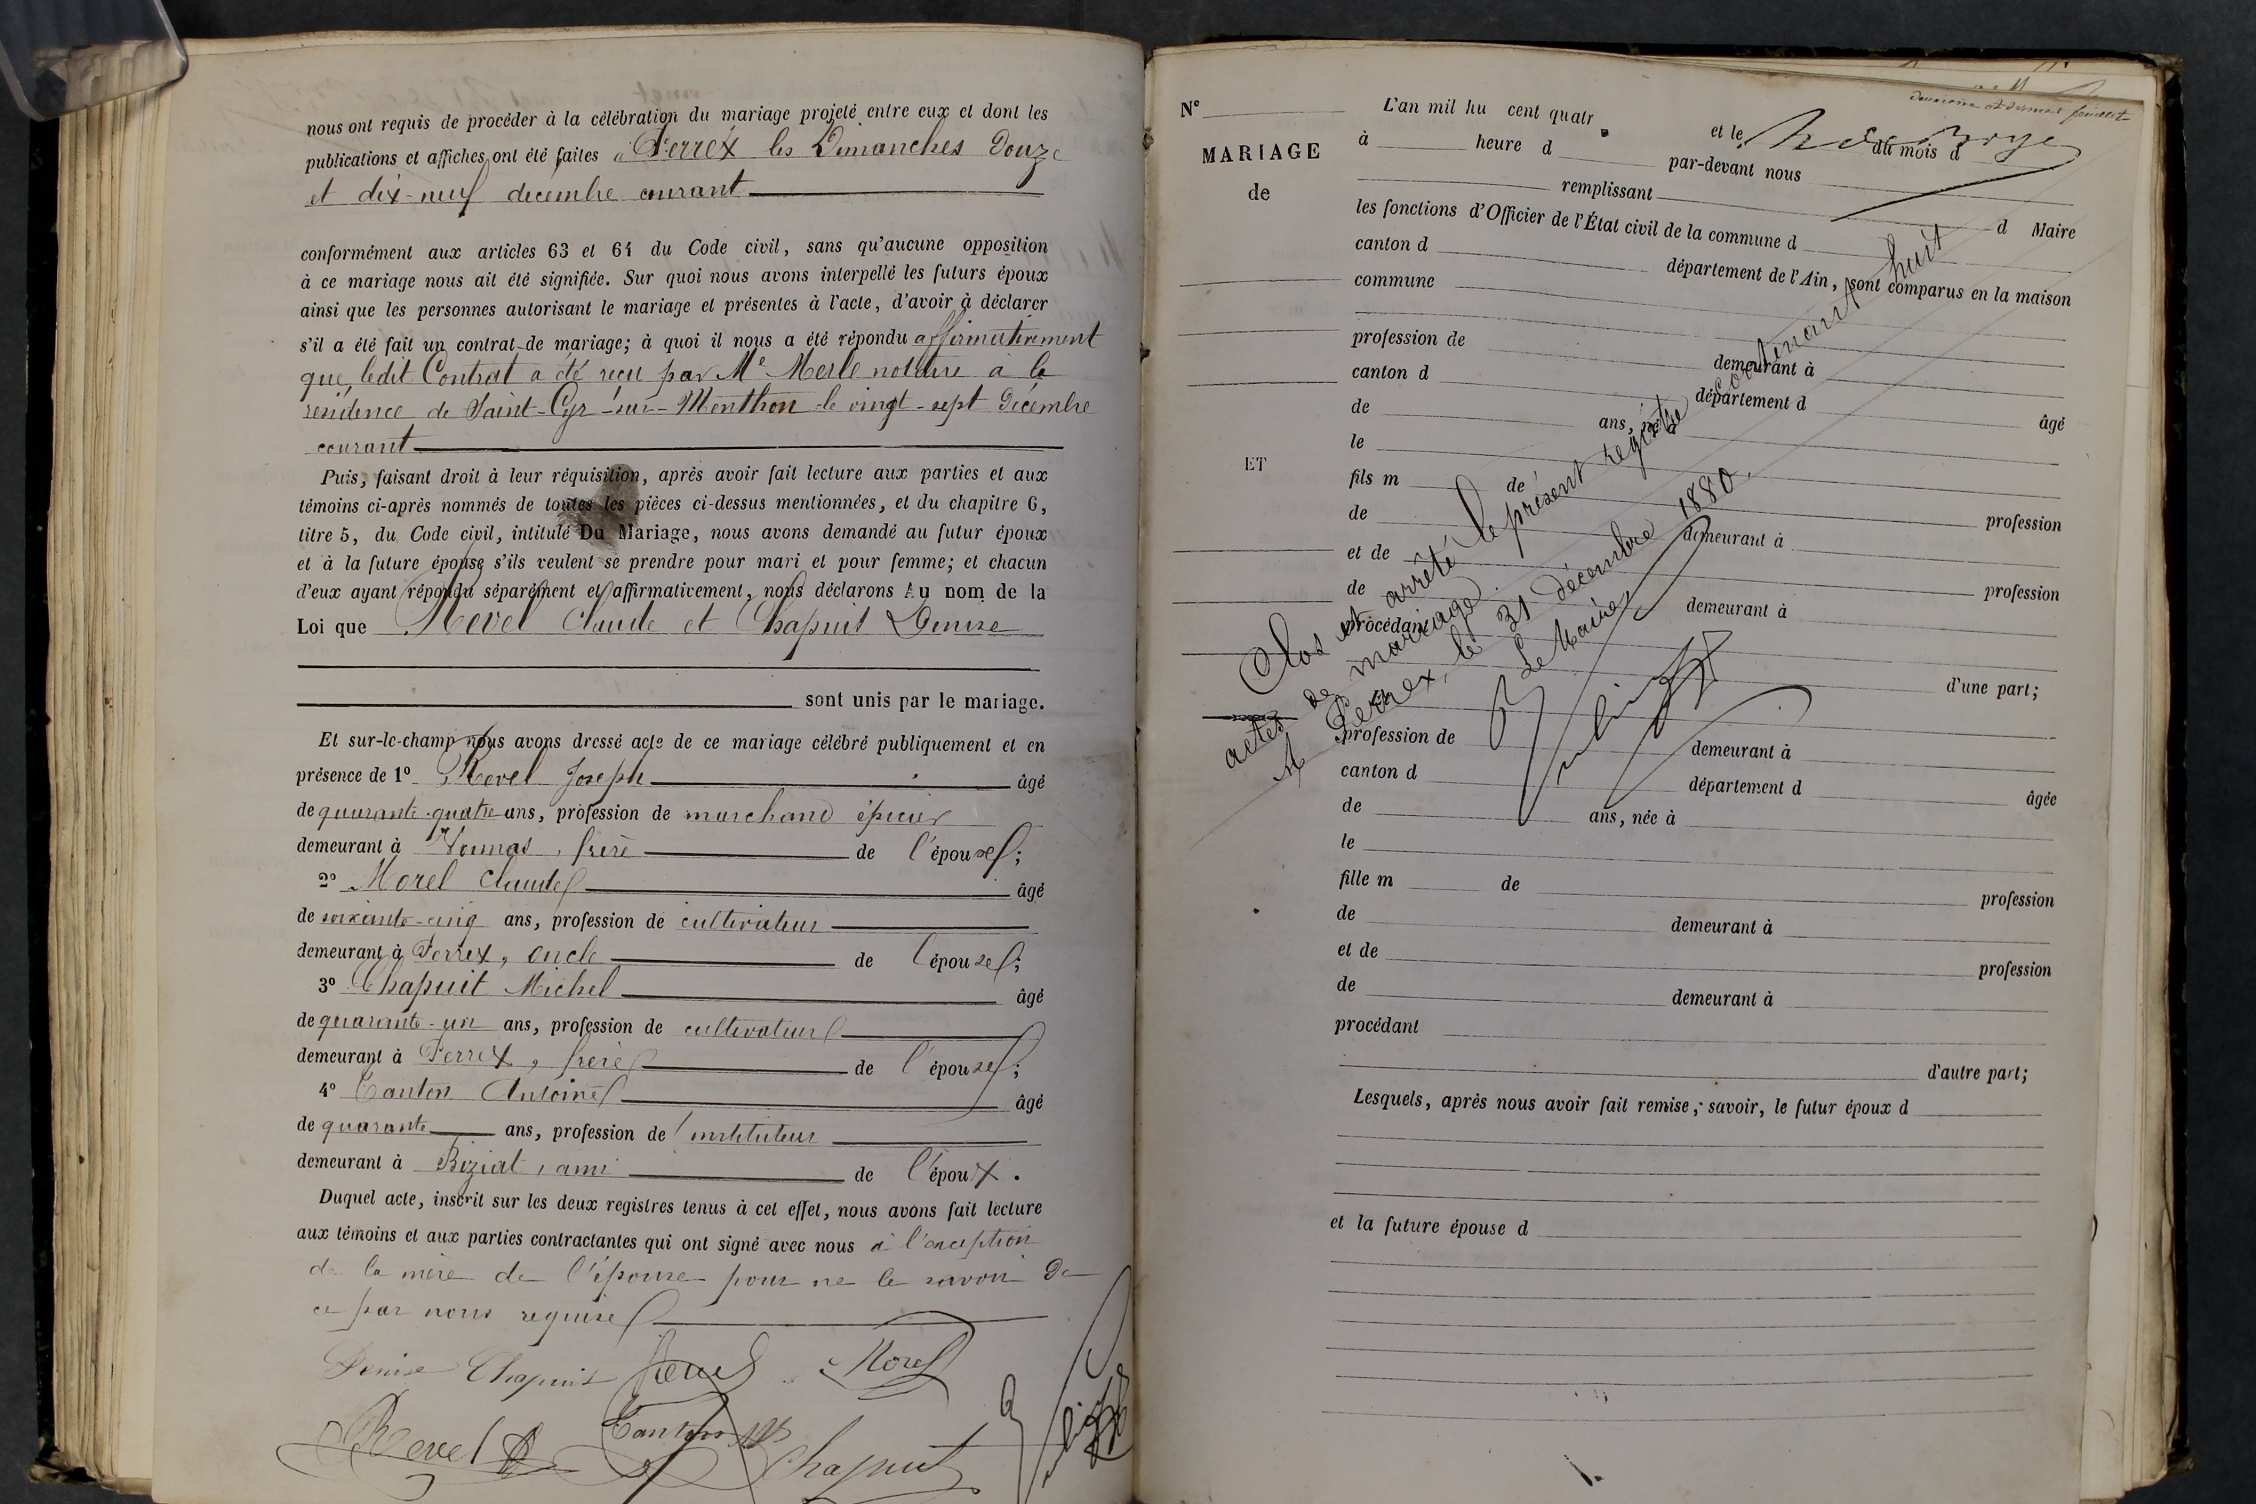 nous ont requis de procéder à la célébration du mariage projeté entre eux et dont les
publications et affiches ont été faites à Perrex les Dimanches Douze
et dix-neuf décembre courant
conformément aux articles 63 et 64 du Code civil, sans qu'aucune opposition
à ce mariage nous ait été signifiée. Sur quoi nous avons interpellé les futurs époux
ainsi que les personnes autorisant le mariage et présentes à l'acte, d'avoir à déclarer
s'il a été fait un contrat de mariage; à quoi il nous a été répondu affirmativement
que ledit Contrat a été reçu par Me Merle notaire à la
résidence de Saint-Cyr-sur-Menthon le vingt-sept Décembre
courant
Puis, faisant droit à leur réquisition, après avoir fait lecture aux parties et aux
témoins ci-après nommés de toutes les pièces ci-dessus mentionnées, et du chapitre 6,
titre 5, du Code civil, intitulé Du Mariage, nous avons demandé au futur époux
et à la future épouse s'ils veulent se prendre pour mari et pour femme; et chacun
d'eux ayant répondu séparément et affirmativement, nous déclarons Au nom de la
Loi que Revel Claude et Chapuit Denise
sont unis par le mariage.
Et sur-le-champ nous avons dressé acte de ce mariage célébré publiquement et en
présence de 1° Revel Joseph âgé
de quarante-quatre ans, profession de marchand épicier
demeurant à Vonnas, frère de l'épouse;
2° Morel Claude âgé
de soixante-cinq ans, profession de cultivateur
demeurant à Perrex, oncle de l'épouse;
3° Chapuit Michel âgé
de quarante-un ans, profession de cultivateur
demeurant à Perrex, frère de l'épouse;
4° Canton Antoine âgé
de quarante ans, profession de instituteur
demeurant à Biziat, ami de l'époux.
Duquel acte, inscrit sur les deux registres tenus à cet effet, nous avons fait lecture
aux témoins et aux parties contractantes qui ont signé avec nous à l'exception
de la mère de l'épouse pour ne le savoir de
ce par nous requise
Denise Chapuis Revel Morel
Revel Canton Chapuit
N° L'an mil hu cent quatr et le du mois d
MARIAGE
de
à heure d par-devant nous
remplissant d Maire
les fonctions d'Officier de l'État civil de la commune d
canton d département de l'Ain, sont comparus en la maison
commune
profession de demeurant à
canton d département d âgé
de ans, né à
le
ET
fils m de profession
de demeurant à
et de profession
de demeurant à
procédant
d'une part;
profession de demeurant à
canton d département d âgée
de ans, née à
le
fille m de profession
de demeurant à
et de profession
de demeurant à
procédant
d'autre part;
Lesquels, après nous avoir fait remise, savoir, le futur époux d
et la future épouse d
Clos et arrêté le présent registre contenant huit
actes de mariage.
A Perrex, le 31 décembre 1880.
Le Maire,